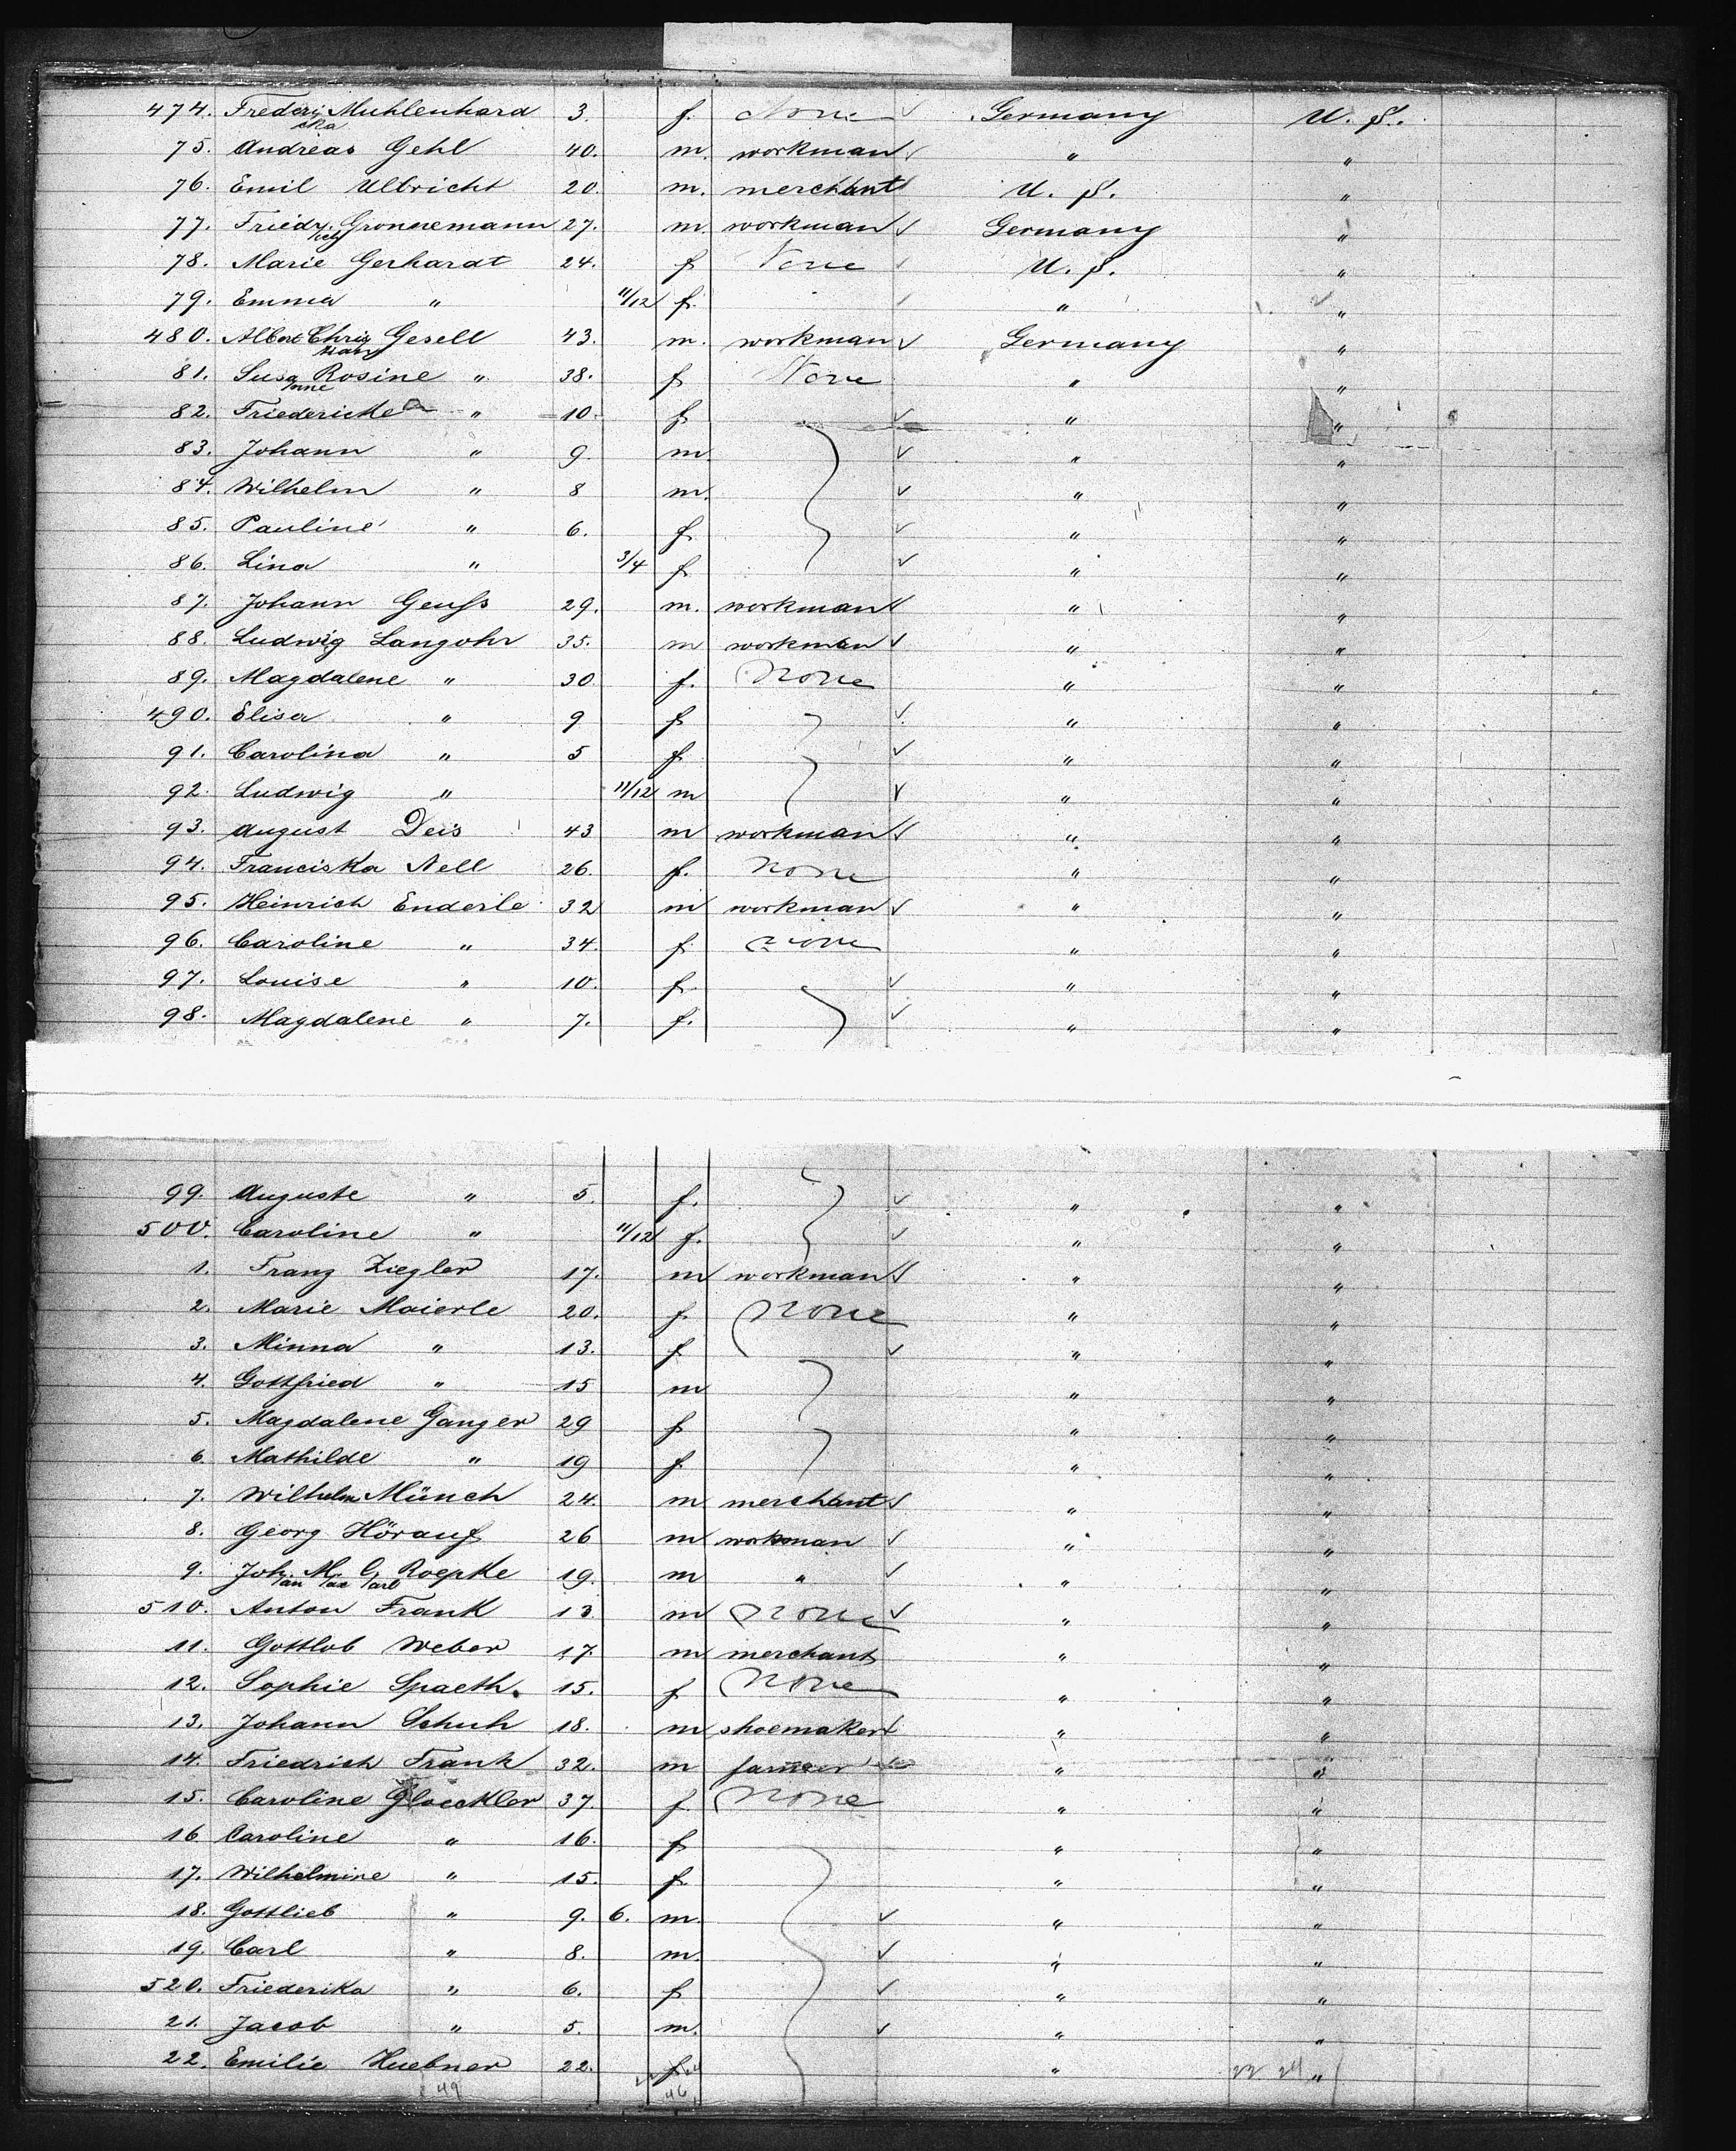 474. Frederi Muhlenhard 3. f. None ✓ Germany U. S.
ska
75. Andreas Gehl 40. m. workman ✓ " "
76. Emil Ulbricht 20 m. merchant ✓ U. S. "
77. Friedr. Gronnemann 27. m. workman ✓ Germany "
ich
78. Marie Gerhardt 24. f None ✓ U. S. "
79. Emma " 11/12 f. ✓ " "
480. Albert Chris Gesell 43. m. workman ✓ Germany "
tian
81. Susa Rosine " 38. f None " "
nne
82. Friedericke " 10. f. ✓ " "
83. Johann " 9. m. ✓ " "
84. Wilhelm " 8 m. ✓ " "
85. Pauline " 6. f. ✓ " "
86. Lina " 3/4 f. ✓ " "
87. Johann Geuss 29. m. workman ✓ " "
88. Ludwig Langohr 35. m workman ✓ " "
89. Magdalene " 30 f. None " "
490. Elisa " 9 f ✓ " "
91. Carolina " 5 f. ✓ " "
92. Ludwig " 11/12 m ✓ " "
93. August Deis 43 m workman ✓ " "
94. Franciska Nell 26. f. None " "
95. Heinrich Enderle 32 m workman ✓ " "
96. Caroline " 34. f. none " "
97. Louise " 10. f. ✓ " "
98. Magdalene " 7. f. ✓ " "
99. Auguste " 5. f. ✓ " "
500. Caroline " 11/12 f. ✓ " "
1. Franz Ziegler 17. m workman ✓ " "
2. Marie Maierle 20. f None " "
3. Minna " 13. f ✓ " "
4. Gottfried " 15 m " "
5. Magdalene Ganger 29 f " "
6. Mathilde " 19 f " "
7. Wilhelm Münch 24. m merchant ✓ " "
8. Georg Hörauf 26 m workman ✓ " "
9. Joh. M. C. Roepke 19. m " ✓ " "
an ax arl
510. Anton Frank 13 m None ✓ " "
11. Gottlob Weber 17. m merchant " "
12. Sophie Spaeth. 15. f None " "
13. Johann Schuh 18. m shoemaker ✓ " "
14. Friedrich Frank 32. m farmer " "
15. Caroline Gloeckler 37. f. None " "
16 Caroline " 16. f " "
17. Wilhelmine " 15. f " "
18. Gottlieb " 9. 6. m. ✓ " "
19. Carl " 8. m. ✓ " "
520. Friederika " 6. f ✓ " "
21. Jacob " 5. m. ✓ " "
22. Emilie Huebner 22. f " 22 24 "
49 46